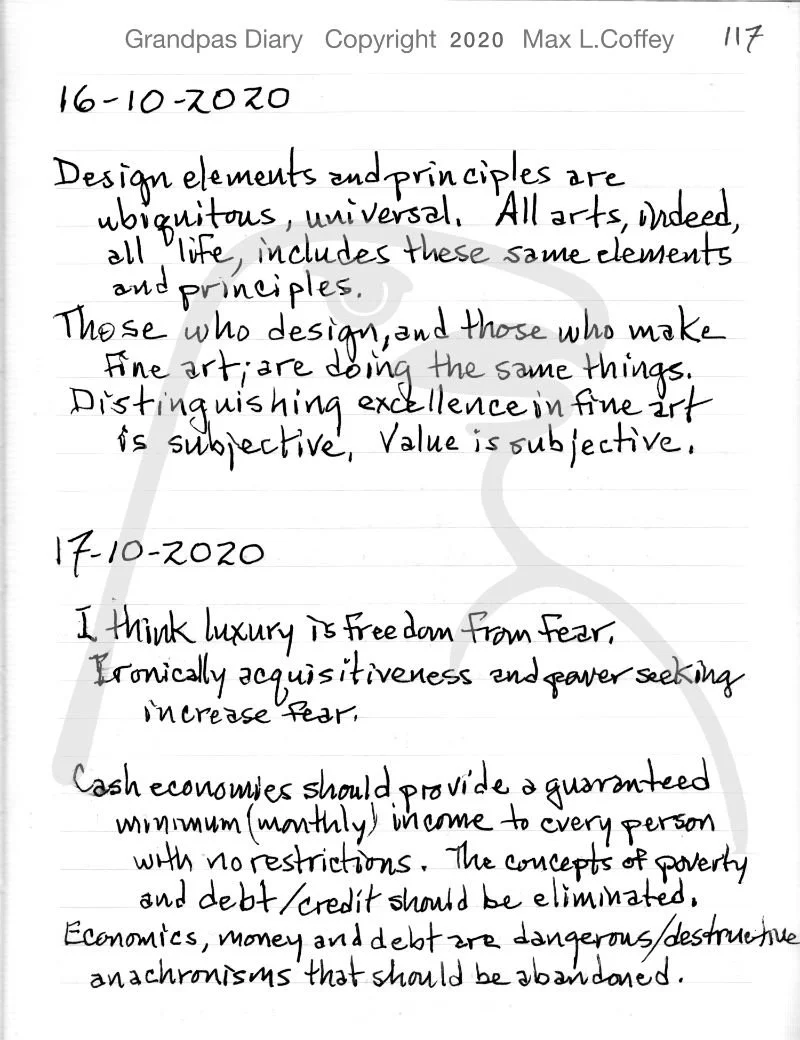 Grandpas Diary Copyright 2020 Max L.Coffey 117
16-10-2020
Design elements and principles are
ubiquitous, universal. All arts, indeed,
all life, includes these same elements
and principles.
Those who design, and those who make
fine art; are doing the same things.
Distinguishing excellence in fine art
is subjective. Value is subjective.
17-10-2020
I think luxury is freedom from fear.
Ironically acquisitiveness and power seeking
increase fear.
Cash economies should provide a guaranteed
minimum (monthly) income to every person
with no restrictions. The concepts of poverty
and debt/credit should be eliminated.
Economics, money and debt are dangerous/destructive
anachronisms that should be abandoned.